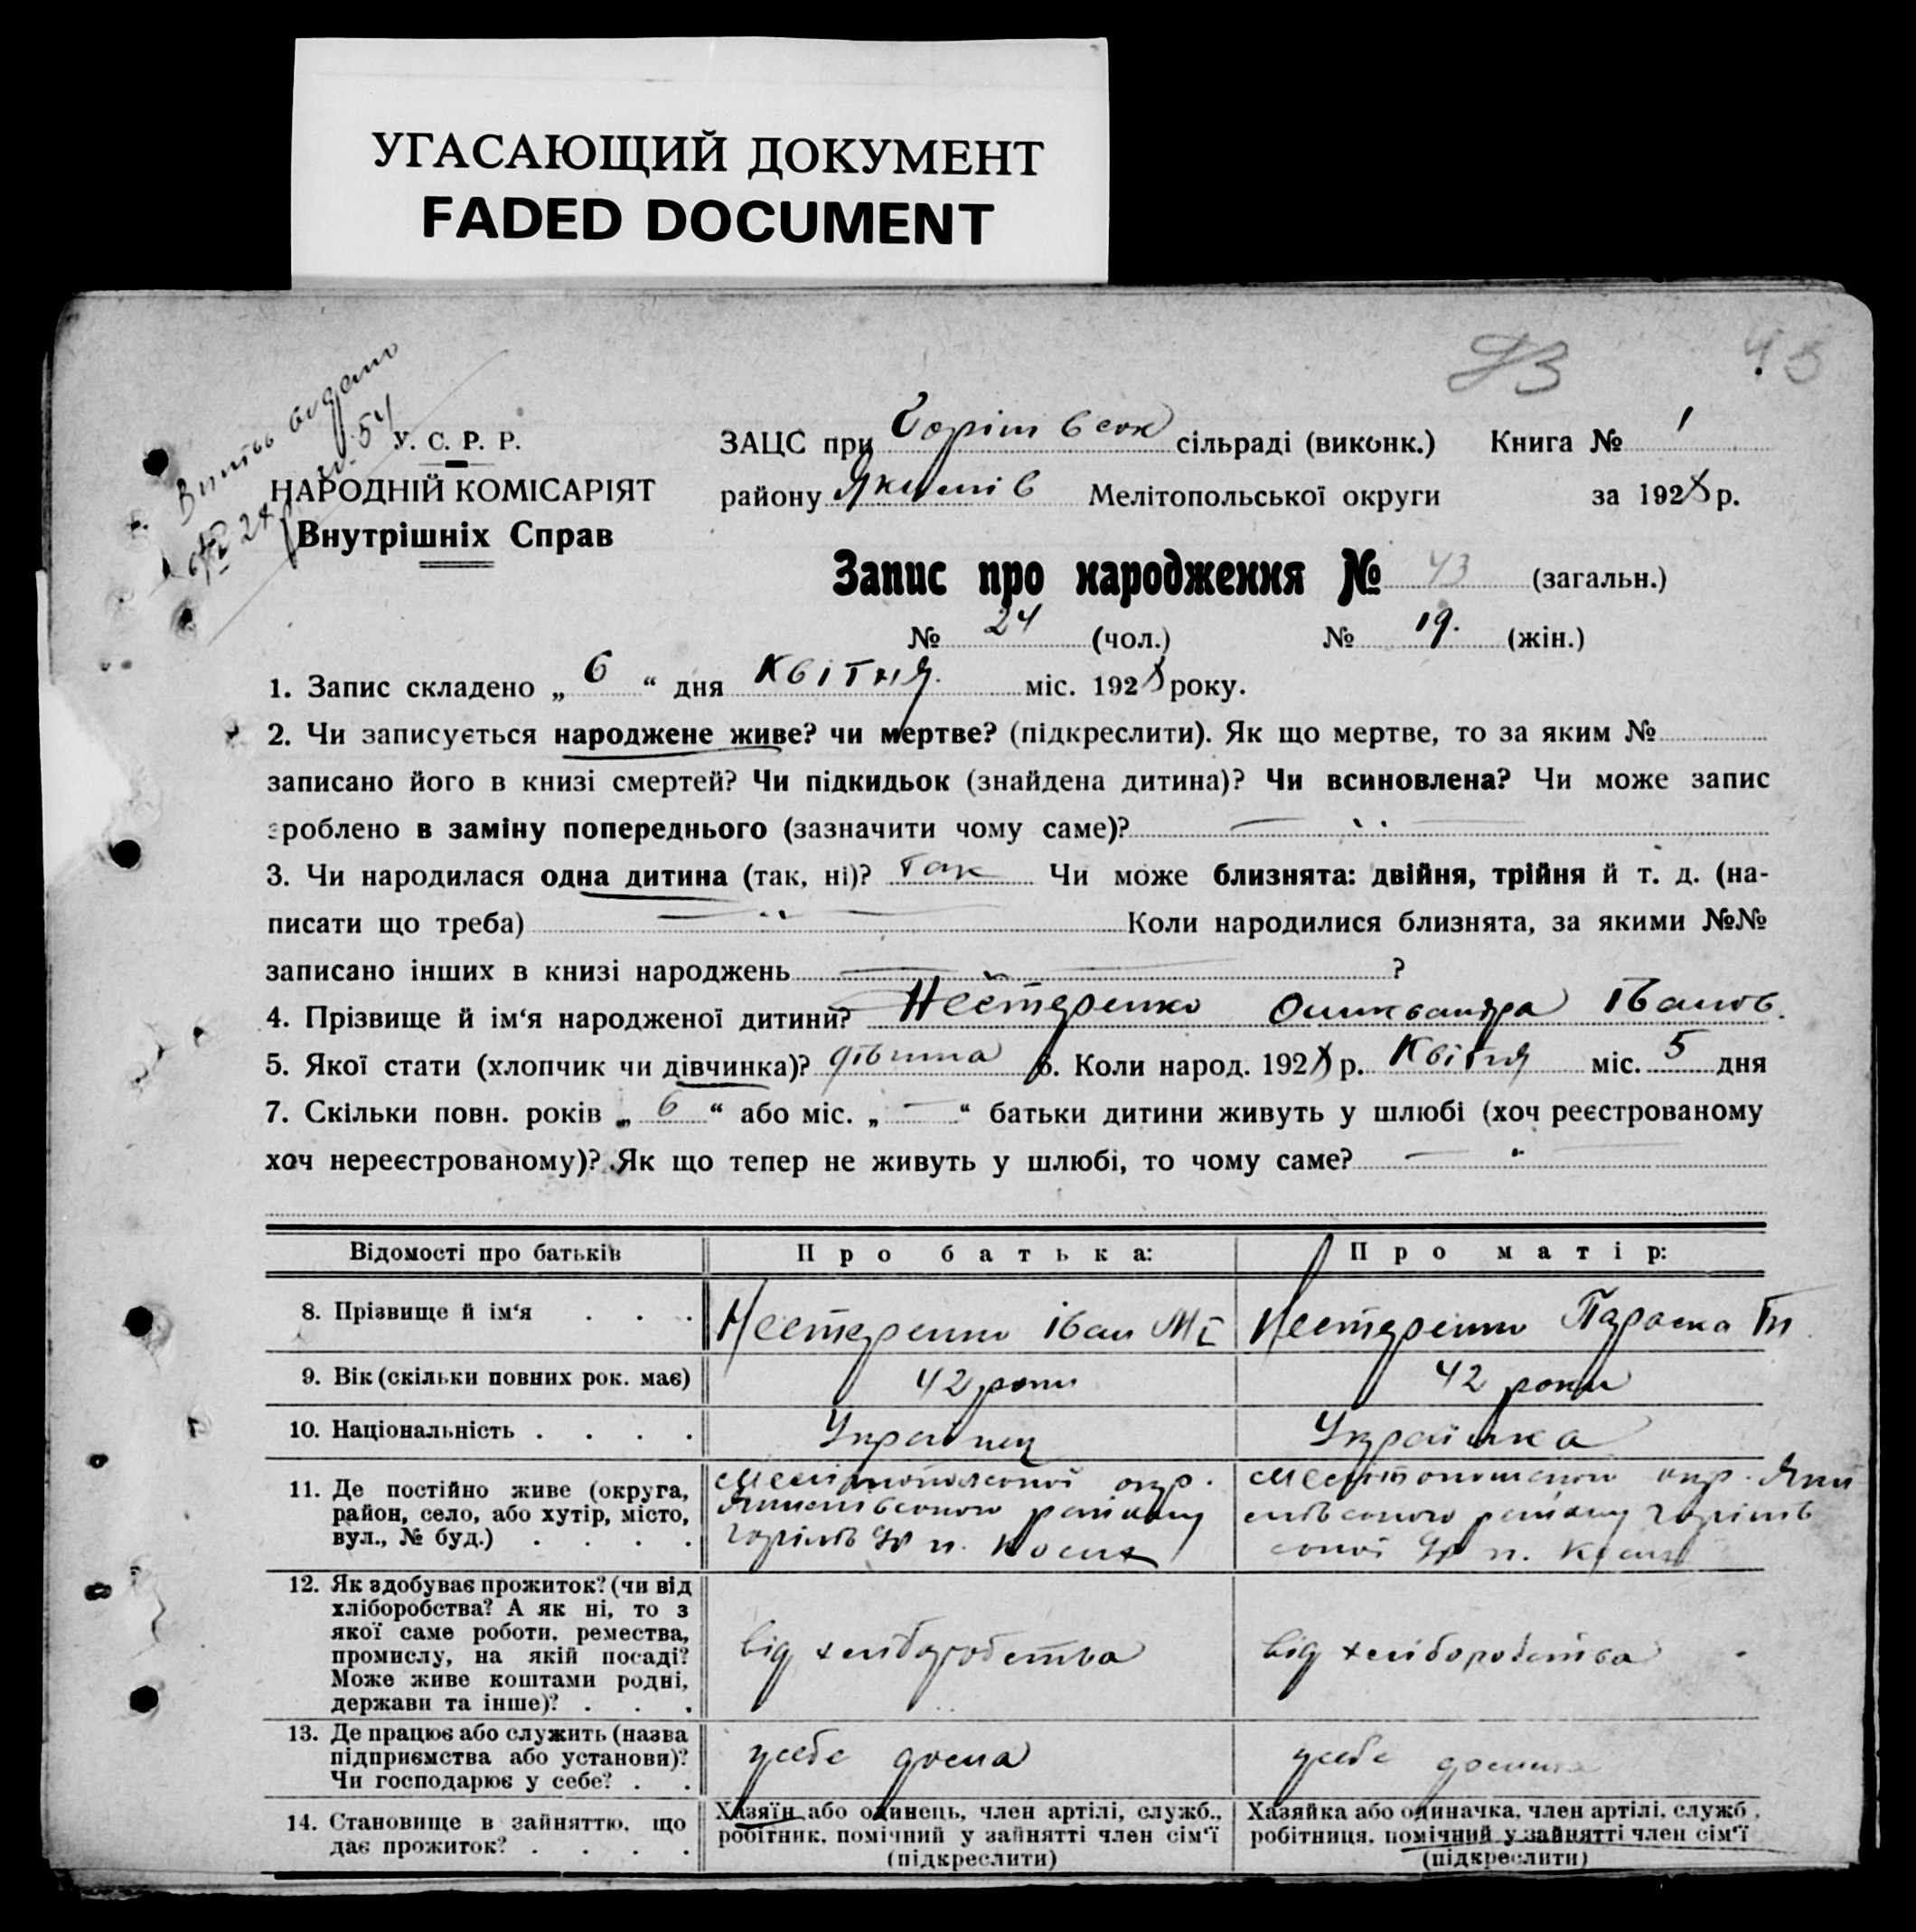 УГАСАЮЩИЙ ДОКУМЕНТ
FADED DOCUMENT
43
Витяг видано
54
У. С. Р. Р.
НАРОДНІЙ КОМІСАРІЯТ
Внутрішніх Справ
ЗАЦС при сільраді (виконк.) Книга № 1
району Якимів Мелітопольської округи за 1928 р.
Запис про народження № 43 (загальн.)
№ 24 (чол.) № 19. (жін.)
1. Запис складено „ 6 “ дня Квітня міс. 1928 року.
2. Чи записується народжене живе? чи мертве? (підкреслити). Як що мертве, то за яким №
записано його в книзі смертей? Чи підкидьок (знайдена дитина)? Чи всиновлена? Чи може запис
зроблено в заміну попереднього (зазначити чому саме)?
3. Чи народилася одна дитина (так, ні)? Так Чи може близнята: двійня, трійня й т. д. (на-
писати що треба) Коли народилися близнята, за якими №№
записано інших в книзі народжень ?
4. Прізвище й ім‘я народженої дитини? Нестеренко Олександра Іванов.
5. Якої стати (хлопчик чи дівчинка)? дівчина 6. Коли народ. 1928 р. Квітня міс. 5 дня
7. Скільки повн. років „ 6 “ або міс. „ — “ батьки дитини живуть у шлюбі (хоч реєстрованому
хоч нереєстрованому)? Як що тепер не живуть у шлюбі, то чому саме?
Відомості про батьків Про батька: Про матір:
8. Прізвище й ім‘я . . . Нестеренко Іван Нестеренко Параска
9. Вік (скільки повних рок. має) 42 роки 42 роки
10. Національність . . . . Українец Українка
11. Де постійно живе (округа,
район, село, або хутір, місто,
вул., № буд.) . . . .
Мелітопольської окр.
Якимівського району
Мелітопольської окр. Яки
мівського району
12. Як здобуває прожиток? (чи від
хліборобства? А як ні, то з
якої саме роботи, ремества,
промислу, на якій посаді?
Може живе коштами родні,
держави та інше)? . . .
від хліборобства від хліборобства
13. Де працює або служить (назва
підприємства або установи)?
Чи господарює у себе? . .
у себе дома у себе дома
14. Становище в зайняттю, що
дає прожиток? . . . .
Хазяїн або одинець, член артілі, служб.,
робітник, помічний у зайнятті член сім‘ї
(підкреслити)
Хазяйка або одиначка, член артілі, служб.,
робітниця, помічний у зайнятті член сім‘ї
(підкреслити)